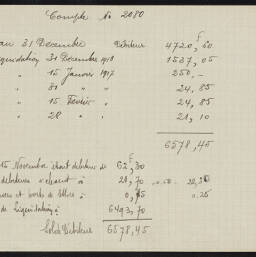 Compte No 2080
au 31 Décembre Débiteur 4720,50
Liquidation 31 Décembre 1916 1537,05
" 15 Janvier 1917 250,-
" 31 " " 24,85
" 15 Février " 24,85
" 28 " " 21,10
6578,45
15 Novembre étant débiteur de 62,30
débiteurs 21,70
0,45 0.25
de liquidation à 6493,70
Solde Débiteur 6578,45